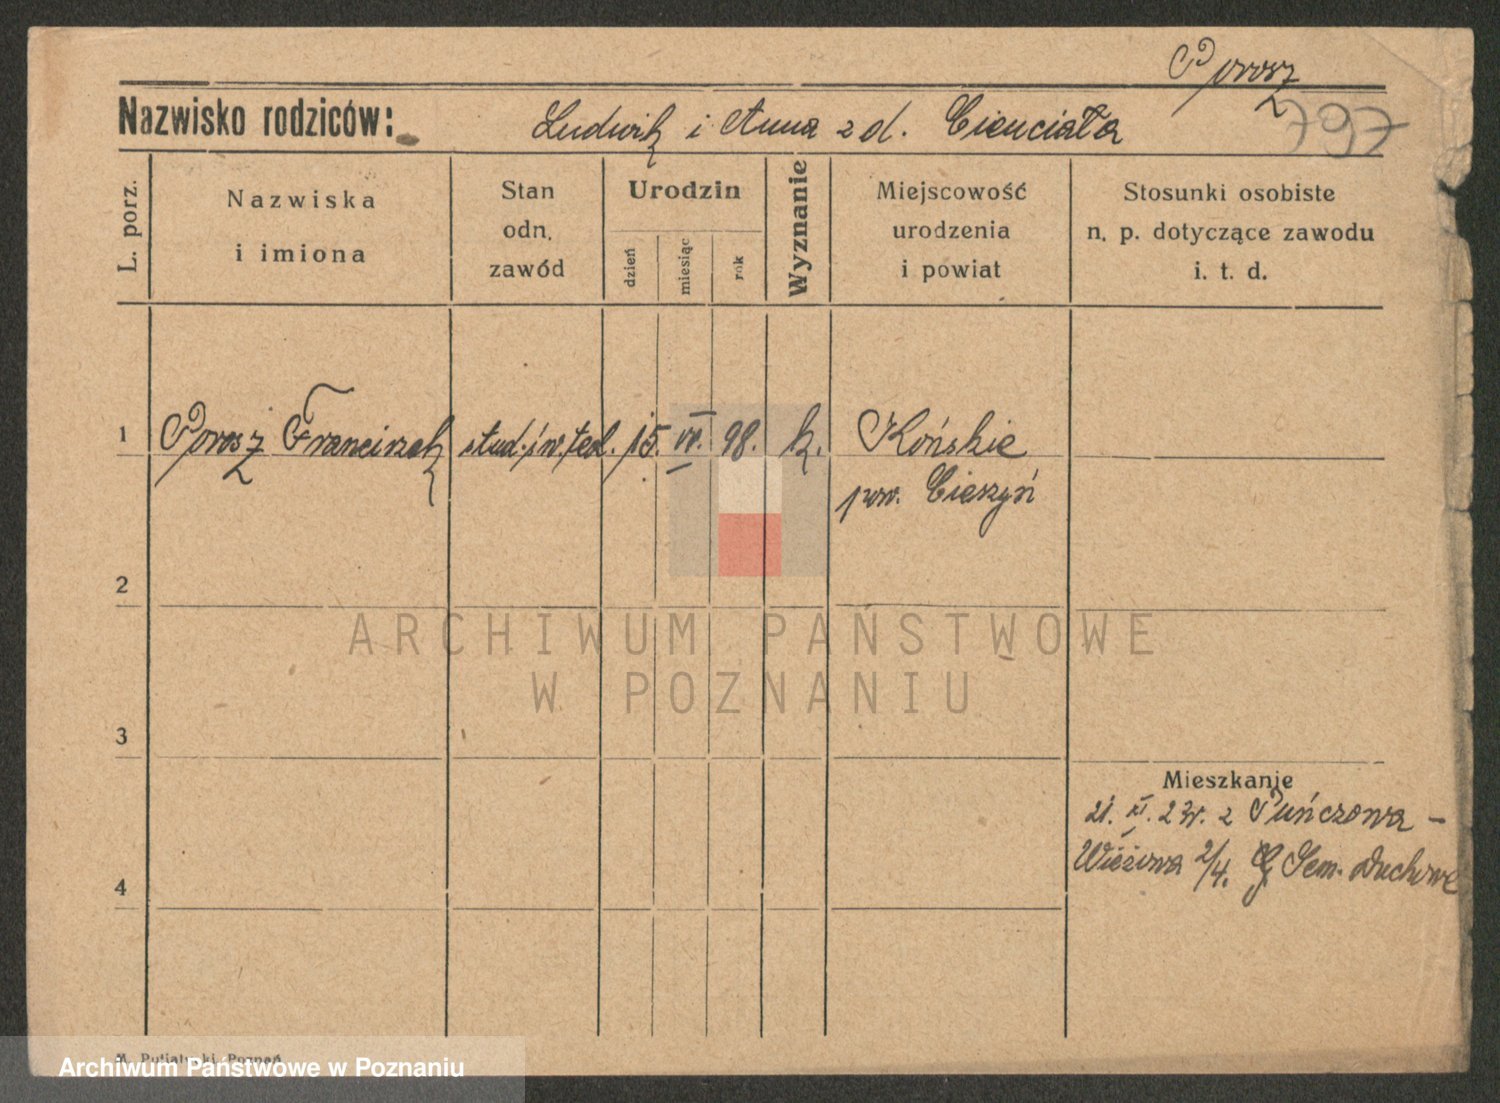 Porosz
Nazwisko rodziców: Ludwik i Anna z d. Cienciała
797
L. porz.
Nazwiska
i imiona
Stan
odn.
zawód
Urodzin
dzień
miesiąc
rok
Wyznanie
Miejscowość
urodzenia
i powiat
Stosunki osobiste
n. p. dotyczące zawodu
i. t. d.
1 Porosz Franciszek stud. św. teol. 15. VI. 98. k. Końskie
pow. Cieszyń
2
ARCHIWUM PAŃSTWOWE
W POZNANIU
3
Mieszkanie
21. XI. 23. z Puńczowa -
Wieżowa 2/4. Sem. Duchowe
4
M. Putiatycki, Poznań
Archiwum Państwowe w Poznaniu